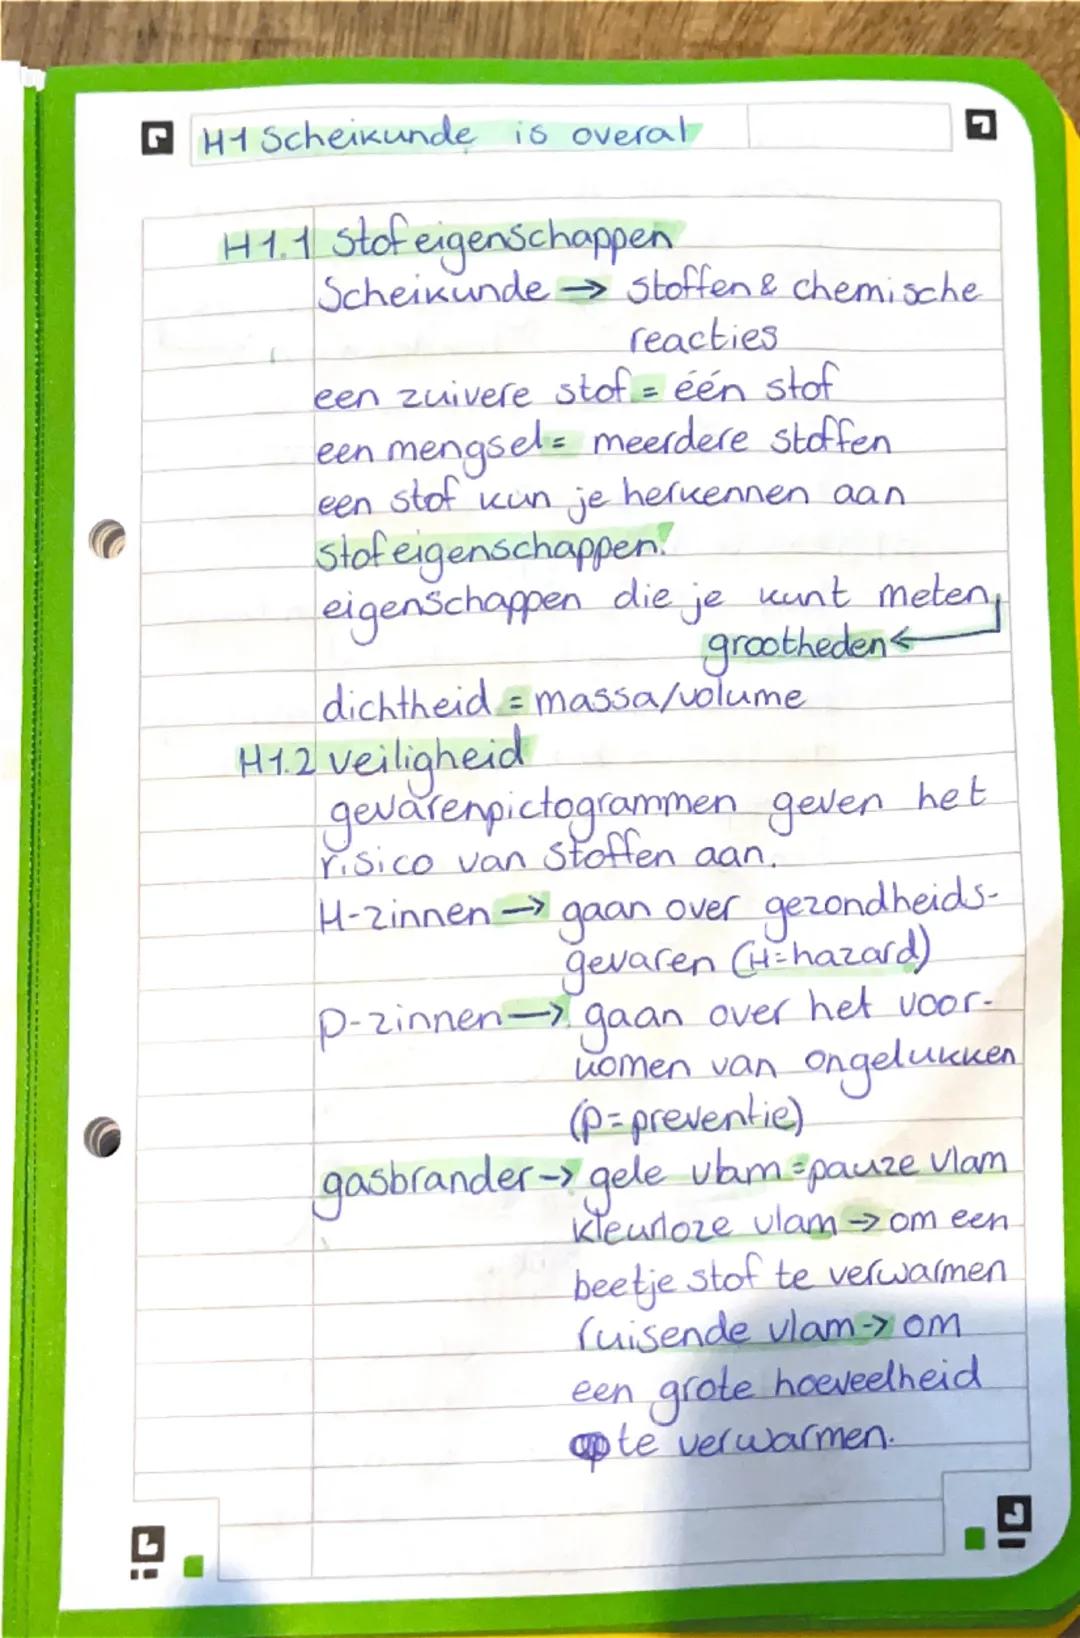 H1 Scheikunde is overal
H1.1 Stofeigenschappen
Scheikunde → stoffen & chemische
reacties
een zuivere stof = één stof
een mengsel = meerdere stoffen
een stof kun je herkennen aan
stofeigenschappen.
eigenschappen die je kunt meten,
grootheden ←
dichtheid = massa/volume
H1.2 veiligheid
gevarenpictogrammen geven het
risico van stoffen aan.
H-zinnen → gaan over gezondheids-
gevaren (H=hazard)
P-zinnen → gaan over het voor-
komen van ongelukken
(P=preventie)
gasbrander → gele vlam = pauze vlam
kleurloze vlam → om een
beetje stof te verwarmen
ruisende vlam → om
een grote hoeveelheid
te verwarmen.